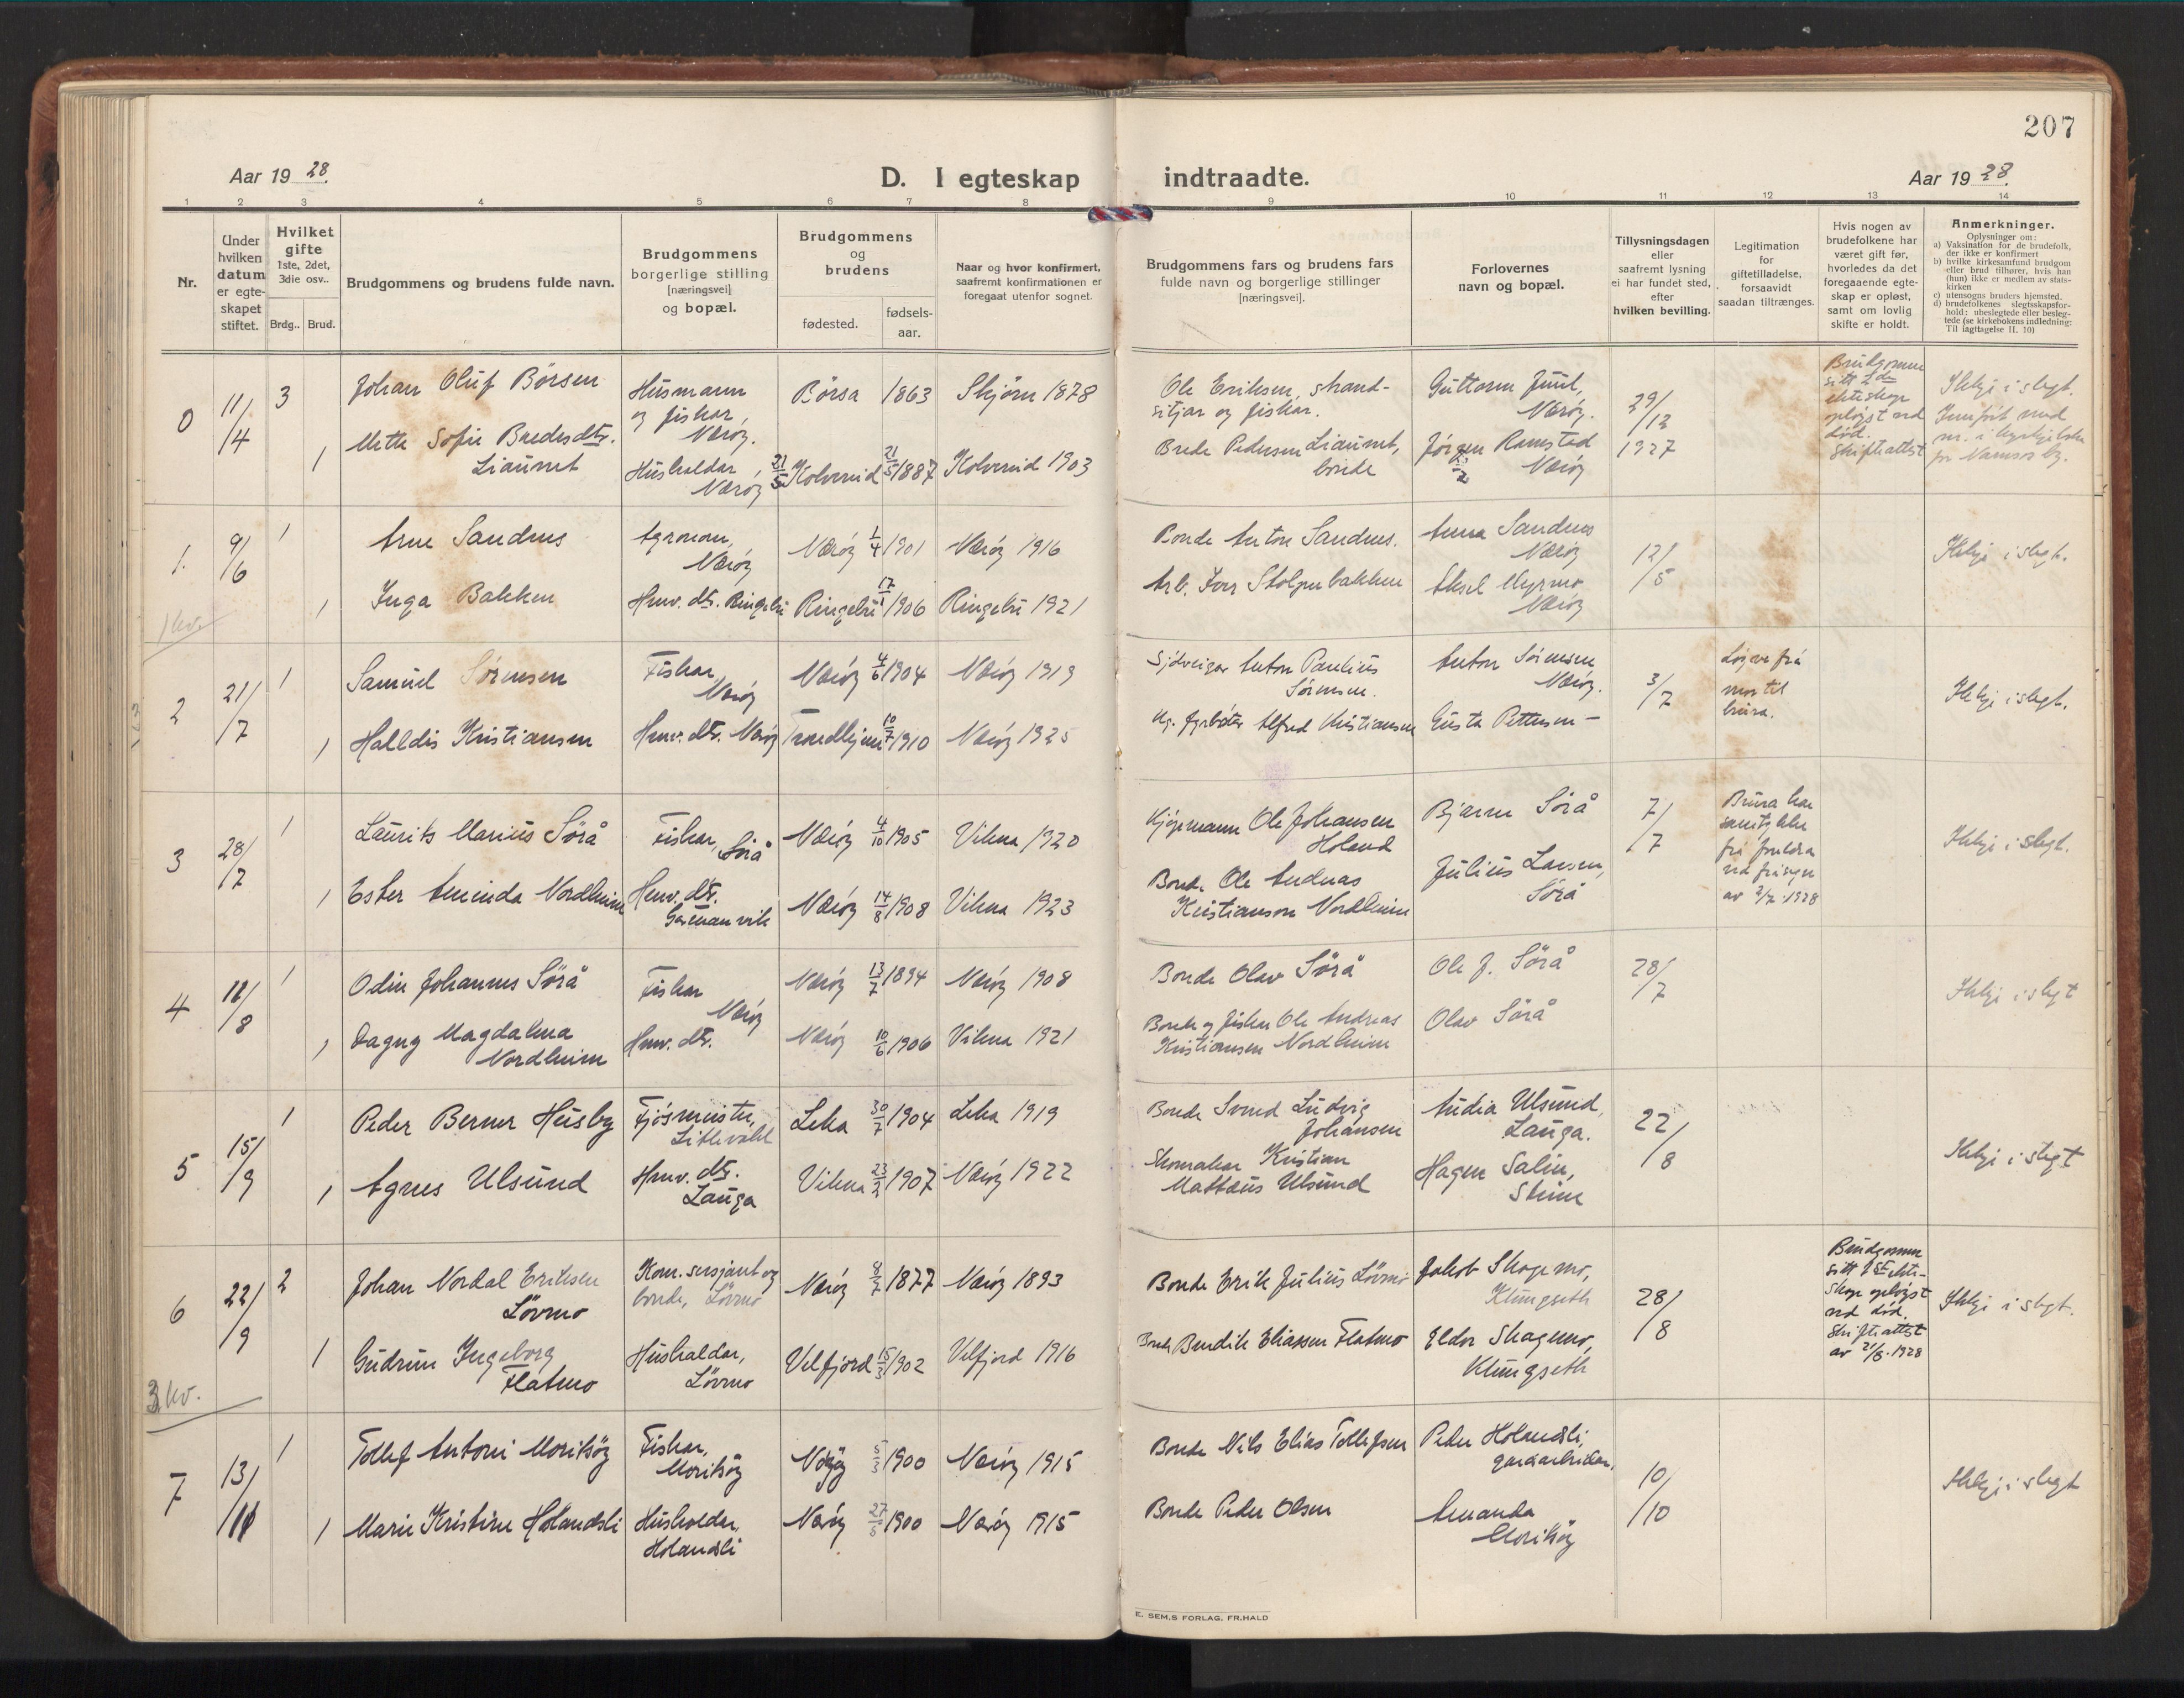 207
Aar 1928.
D. I egteskap indtraadte.
Aar 1928.
1 2 3 4 5 6 7 8 9 10 11 12 13 14
Nr.
Under
hvilken
datum
er egte-
skapet
stiftet.
Hvilket
gifte
1ste, 2det,
3die osv..
Brdg..
Brud.
Brudgommens og brudens fulde navn.
Brudgommens
borgerlige stilling
[næringsvei]
og bopæl.
Brudgommens
og
brudens
fødested.
fødsels-
aar.
Naar og hvor konfirmert,
saafremt konfirmationen er
foregaat utenfor sognet.
Brudgommens fars og brudens fars
fulde navn og borgerlige stillinger
[næringsvei].
Forlovernes
navn og bopæl.
Tillysningsdagen
eller
saafremt lysning
ei har fundet sted,
efter
hvilken bevilling.
Legitimation
for
giftetilladelse,
forsaavidt
saadan tiltrænges.
Hvis nogen av
brudefolkene har
været gift før,
hvorledes da det
foregaaende egte-
skap er opløst,
samt om lovlig
skifte er holdt.
Anmerkninger.
Oplysninger om:
a) Vaksination for de brudefolk,
der ikke er konfirmert
b) hvilke kirkesamfund brudgom
eller brud tilhører, hvis han
(hun) ikke er medlem av stats-
kirken
c) utensogns bruders hjemsted.
d) brudefolkenes slegtsskapsfor-
hold: ubeslegtede eller besleg-
tede (se kirkebokens indledning:
Til iagttagelse II. 10)
0
11/4
3
Johan Oluf Börsen
Husmann
og fiskar,
Næröy.
Börsa 1863 Skjörn 1878
Ole Eriksen, strand-
sitjar og fiskar.
Guttorm Juul,
Næröy.
29/12
1927
Brudgommen
sitt 2det
ekteskap
opløyst ved
död.
Skifteattest
Ikkje i slegt.
1
Mette Sofie Bredesdtr.
Liaunet
Hushaldar,
Næröy
21/5 Kolvereid 21/5 1887 Kolvereid 1903
Brede Pedersen Liaunet,
bonde
Jörgen Ramstad
Næröy
1.
9/6
1
Arne Sandnes
Agronom,
Næröy
Næröy 1/4 1901 Næröy 1916
Bonde Anton Sandnes.
Anna Sandnes
Næröy
12/5
Ikkje i slegt.
1
Inga Bakken
Hmv. dtr. Ringebu
Ringebu 17/1 1906 Ringebu 1921
Arb. Iver Stolpenbakken
Aksel Myrmo
Næröy
1 kv.
2
21/7
1
Samuel Sörensen
Fiskar,
Næröy
Næröy 4/6 1904 Næröy 1919
Sjöveigar Anton Paulius
Sörensen.
Anton Sörensen
Næröy.
3/7
Löyve frå
mor til
brura.
Ikkje i slegt.
1
Halldis Kristiansen
Hmv. dtr. Næröy
Trondhjem 10/7 1910 Næröy 1925
Alfred Kristiansen
Gusta Pettersen –
3
28/7
1
Laurits Marius Sörå
Fiskar, Sörå
Næröy 4/10 1905 Vikna 1920
Kjöpmann Ole Johansen
Holand
Bjarne Sörå
7/7
Brura har
samtykke
frå foreldra
av 2/7 1928
Ikkje i slegt.
1
Ester Aminda Nordheim
Hmv. dtr.
Næröy 14/8 1908 Vikna 1923
Bonde Ole Andreas
Kristianson Nordheim
Julius Larsen,
Sörå
4
11/8
1
Odin Johannes Sörå
Fiskar
Næröy
Næröy 13/7 1894 Næröy 1908
Bonde Olav Sörå
Ole J. Sörå
28/7
Ikkje i slegt
1
Dagny Magdalena
Nordheim
Hmv. dtr.
Næröy 10/6 1906 Vikna 1921
Bonde og fiskar Ole Andreas
Kristiansen Nordheim
Olav Sörå
5
15/9
1
Peder Berner Husby
Fjösmeister,
Leka 30/7 1904 Leka 1919
Bonde Svend Ludvig
Johansen
Audia Ulsund,
Lauga.
22/8
Ikkje i slegt
1
Agnes Ulsund
Hmv. dtr.
Lauga
Vikna 23/2 1907 Næröy 1922
Skomakar Kristian
Mattæus Ulsund
Hagen Salin,
Steine
6
22/9
2
Johan Nordal Eriksen
Lövmo
Kom. sersjant og
bonde, Lövmo
Næröy 8/7 1877 Næröy 1893
Bonde Erik Julius Lövmo
Jakob Skogmo,
Klungseth
28/8
Brudgommen
sitt 1ste ekte-
skap opløyst
ved död.
Skifteattest
av 21/8. 1928
Ikkje i slegt.
1
Gudrun Ingeborg
Flatmo
Hushaldar,
Lövmo
Velfjord 15/3 1902 Velfjord 1916
Bonde Bendik Eliassen Flatmo
Eldor Skagmo,
Klungseth
3 kv.
7
13/11
1
Tollef Antoni Moriksöy
Fiskar,
Moriksöy
Næröy 5/3 1900 Næröy 1915
Bonde Nils Elias Tollefsen
Peder Hölandsli,
gardarbeidar,
10/10
Ikkje i slegt
1
Marie Kristine Hölandsli
Husholdar,
Hölandsli
Næröy 27/5 1900 Næröy 1915
Bonde Peder Olsen
Amanda
Moriksöy
E. SEM,S FORLAG, FR.HALD